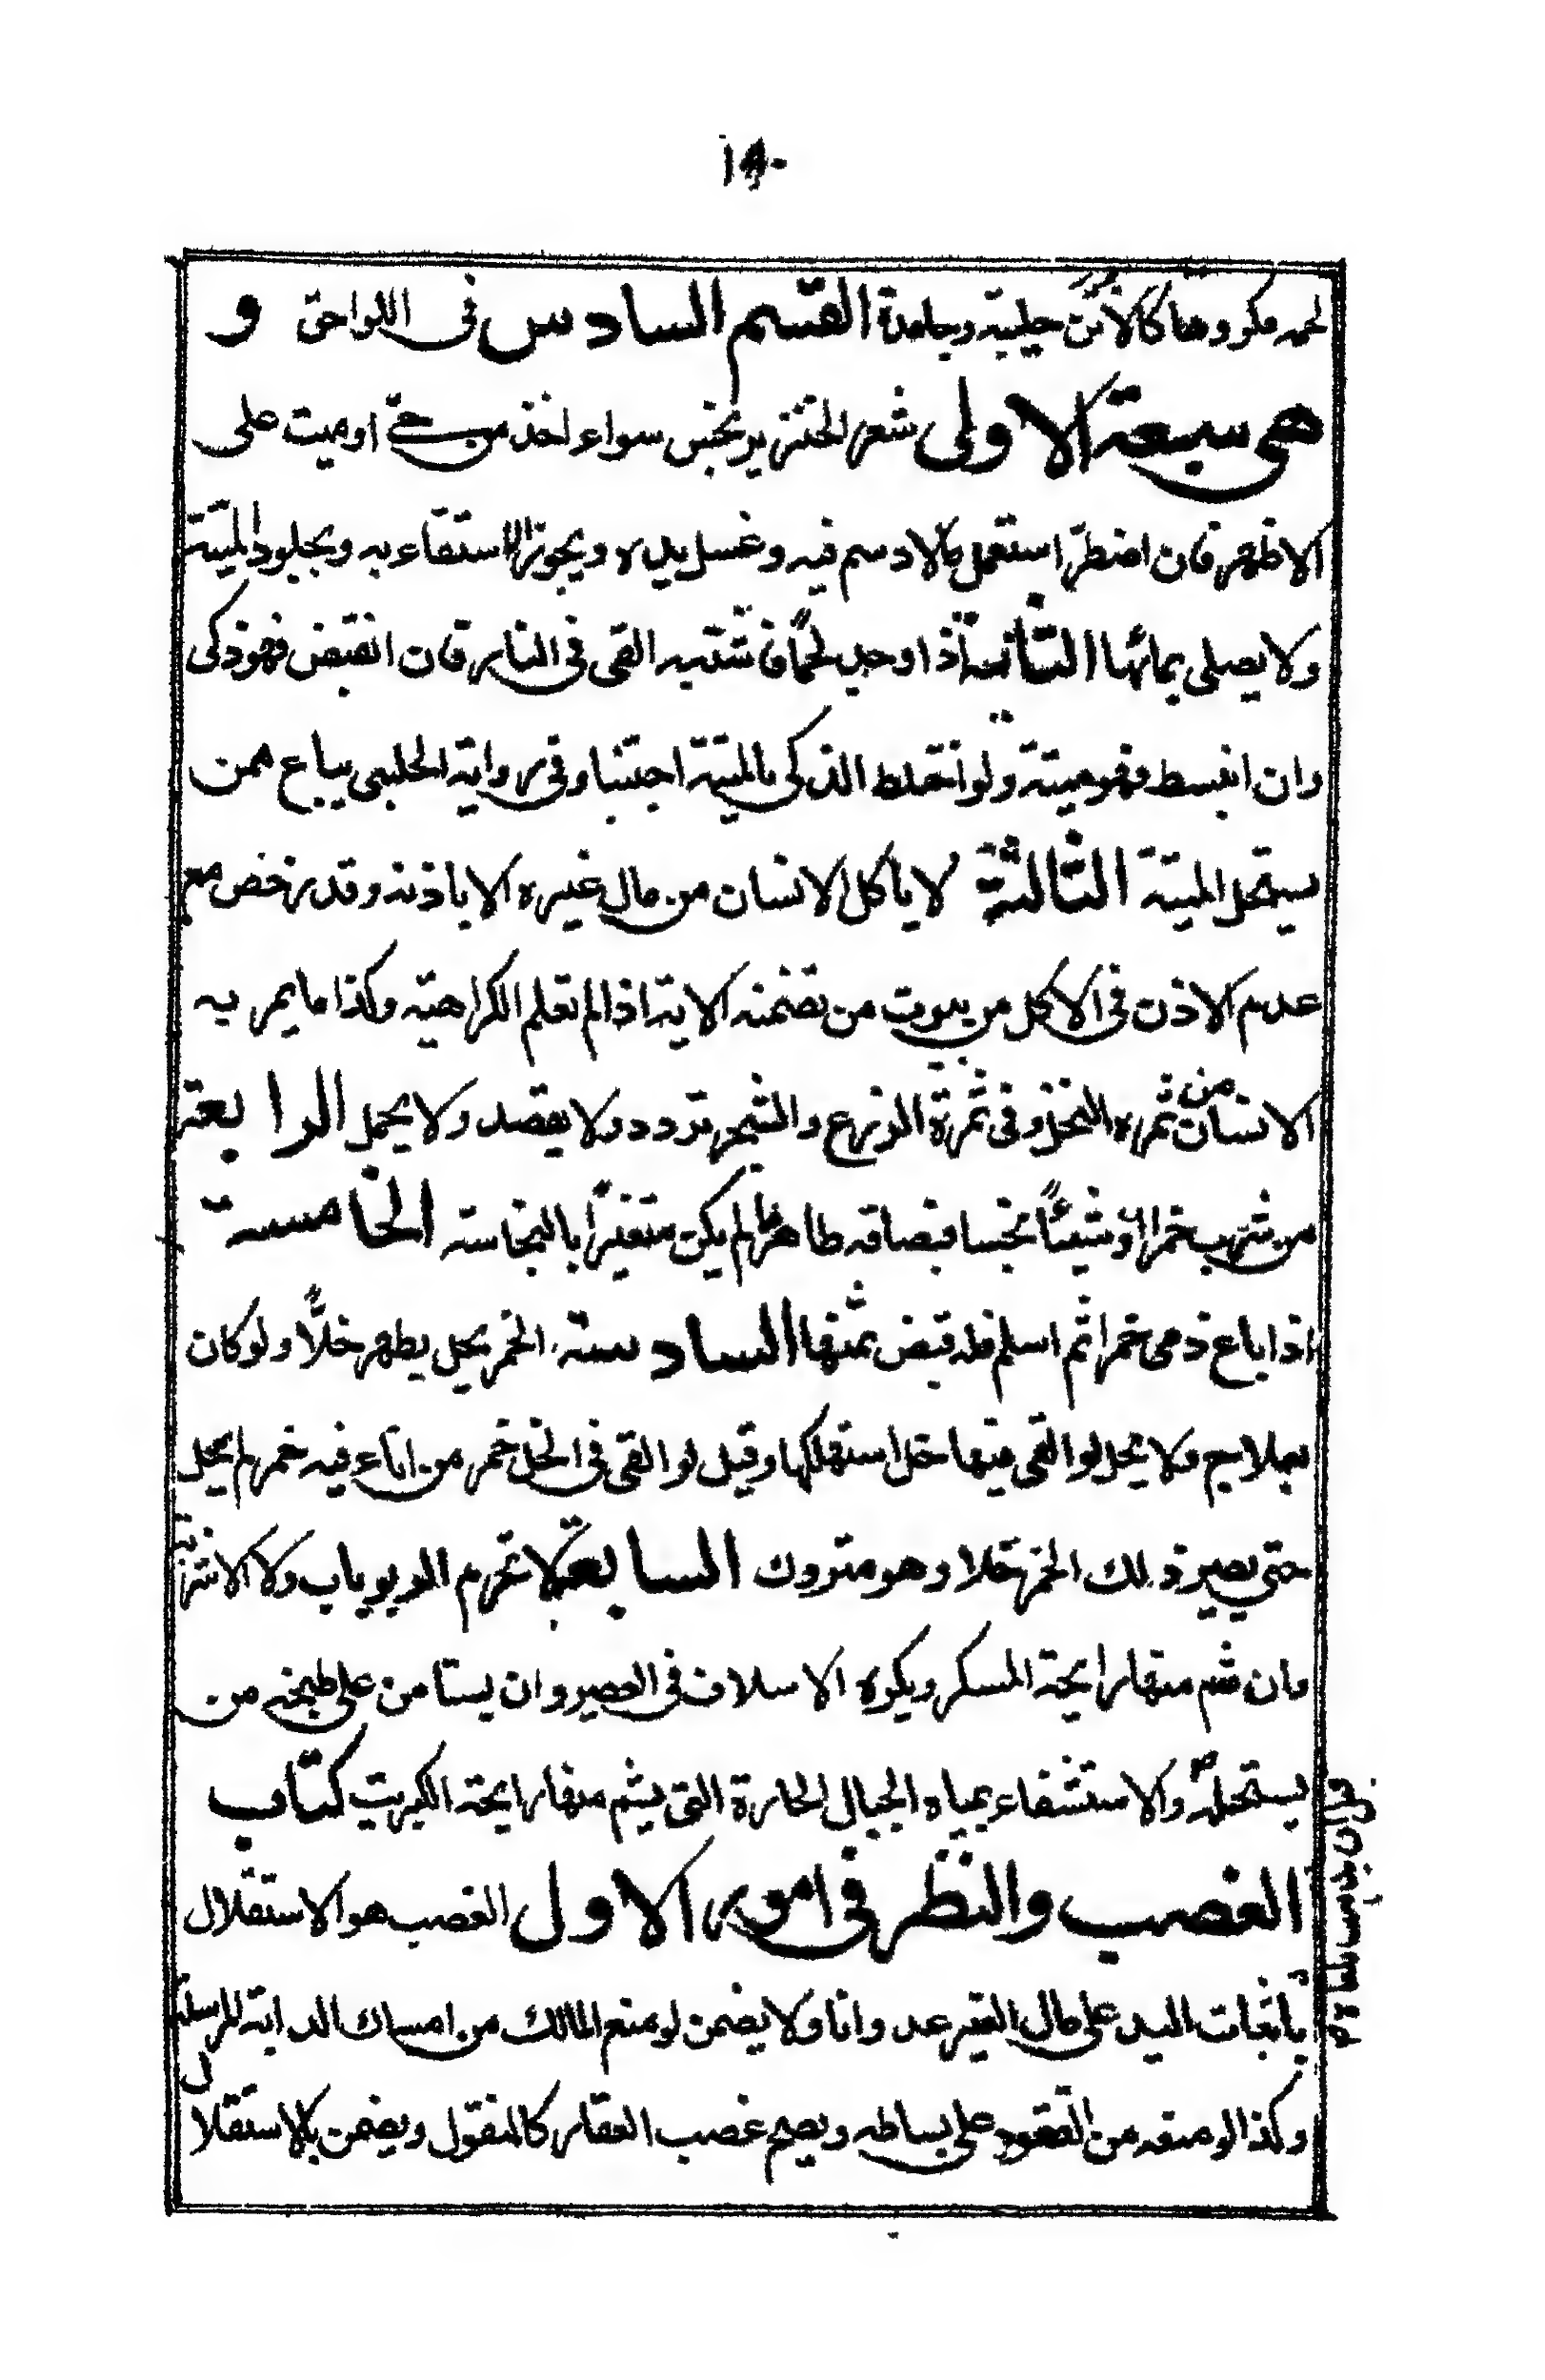 ١٩٠
لحمه مكروها كالاتن حليبه وجامدة القسم السادس في اللواحق و
هي سبعة الاولى شعر الخنزير نجس سواء اخذ من حي او ميت على
الاظهر فان اضطر استعمل مالا دسم فيه وغسل يده ويجوز الاستقاء به وبجلود الميتة
ولا يصلى بمائها الثانية اذا وجد لحماً فاشتبه القى في النار فان انقبض فهو ذكى
وان انبسط فهو ميتة ولو اختلط الذكى بالميتة اجتنبا وفي رواية الحلبى يباع ممن
يستحل الميتة الثالثة لا ياكل الانسان من مال غيره الا باذنه وقد رخص مع
عدم الاذن في الاكل من بيوت من تضمنه الاية اذا لم تعلم الكراهية وكذا ما يمر به
الانسان من ثمره النخل وفي ثمرة الزرع والشجر تردد ولا يقصد ولا يحمل الرابعة
من شرب خمرا او شيئاً نجسا فبصاقه طاهر ما لم يكن متغيراً بالنجاسة الخامسة
اذا باع ذمى خمرا ثم اسلم فله قبض ثمنها السادسة الخمر يحل يطهر خلاً ولو كان
بعلاج ولا يحل لو القى فيها خل استهلكها وقيل لو القى في الخل خمر من اناء فيه خمر لم يحل
حتى يصير ذلك الخمر خلا وهو متروك السابعة لا تحرم الربوبات ولا الاشربة
وان شم منها رايحة المسكر ويكره الاسلاف في العصير وان يستامن على طبخه من
يستحله والاستشفاء بمياه الجبال الحارة التى يشم منها رايحة الكبريت كتاب
الغصب والنظر في امور الاول الغصب هو الاستقلال
باثبات اليد على مال الغير عدوانا ولا يضمن لو منع المالك من امساك الدابة المرسلة
وكذا لو منعه من القعود على بساطه ويصح غصب العقار كالمنقول ويضمن بالاستقلال